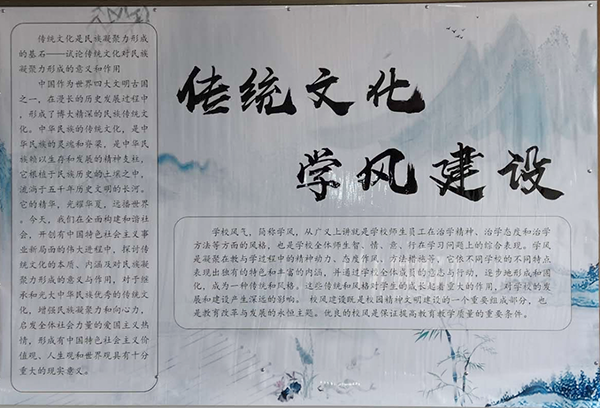 传统文化是民族凝聚力形成
的基石——试论传统文化对民族
凝聚力形成的意义和作用
中国作为世界四大文明古国
之一，在漫长的历史发展过程中
，形成了博大精深的民族传统文
化。中华民族的传统文化，是中
华民族的灵魂和脊梁，是中华民
族赖以生存和发展的精神支柱，
它根植于民族历史的土壤之中，
流淌于五千年历史文明的长河。
它的精华，光耀华夏，远播世界
。今天，我们在全面构建和谐社
会，开创有中国特色社会主义事
业新局面的伟大进程中，探讨传
统文化的本质、内涵及对民族凝
聚力形成的意义与作用，对于继
承和光大中华民族优秀的传统文
化，增强民族凝聚力和向心力，
启发全体社会力量的爱国主义热
情，形成有中国特色社会主义价
值观、人生观和世界观具有十分
重大的现实意义。
传统文化
学风建设
学校风气，简称学风，从广义上讲就是学校师生员工在治学精神、治学态度和治学
方法等方面的风格，也是学校全体师生智、情、意、行在学习问题上的综合表现。学风
是凝聚在教与学过程中的精神动力、态度作风、方法措施等，它依不同学校的不同特点
表现出独有的特色和丰富的内涵，并通过学校全体成员的意志与行动，逐步地形成和固
化，成为一种传统和风格。这些传统和风格对学生的成长起着重大的作用，对学校的发
展和建设产生深远的影响。 校风建设既是校园精神文明建设的一个重要组成部分，也
是教育改革与发展的永恒主题。优良的校风是保证提高教育教学质量的重要条件。